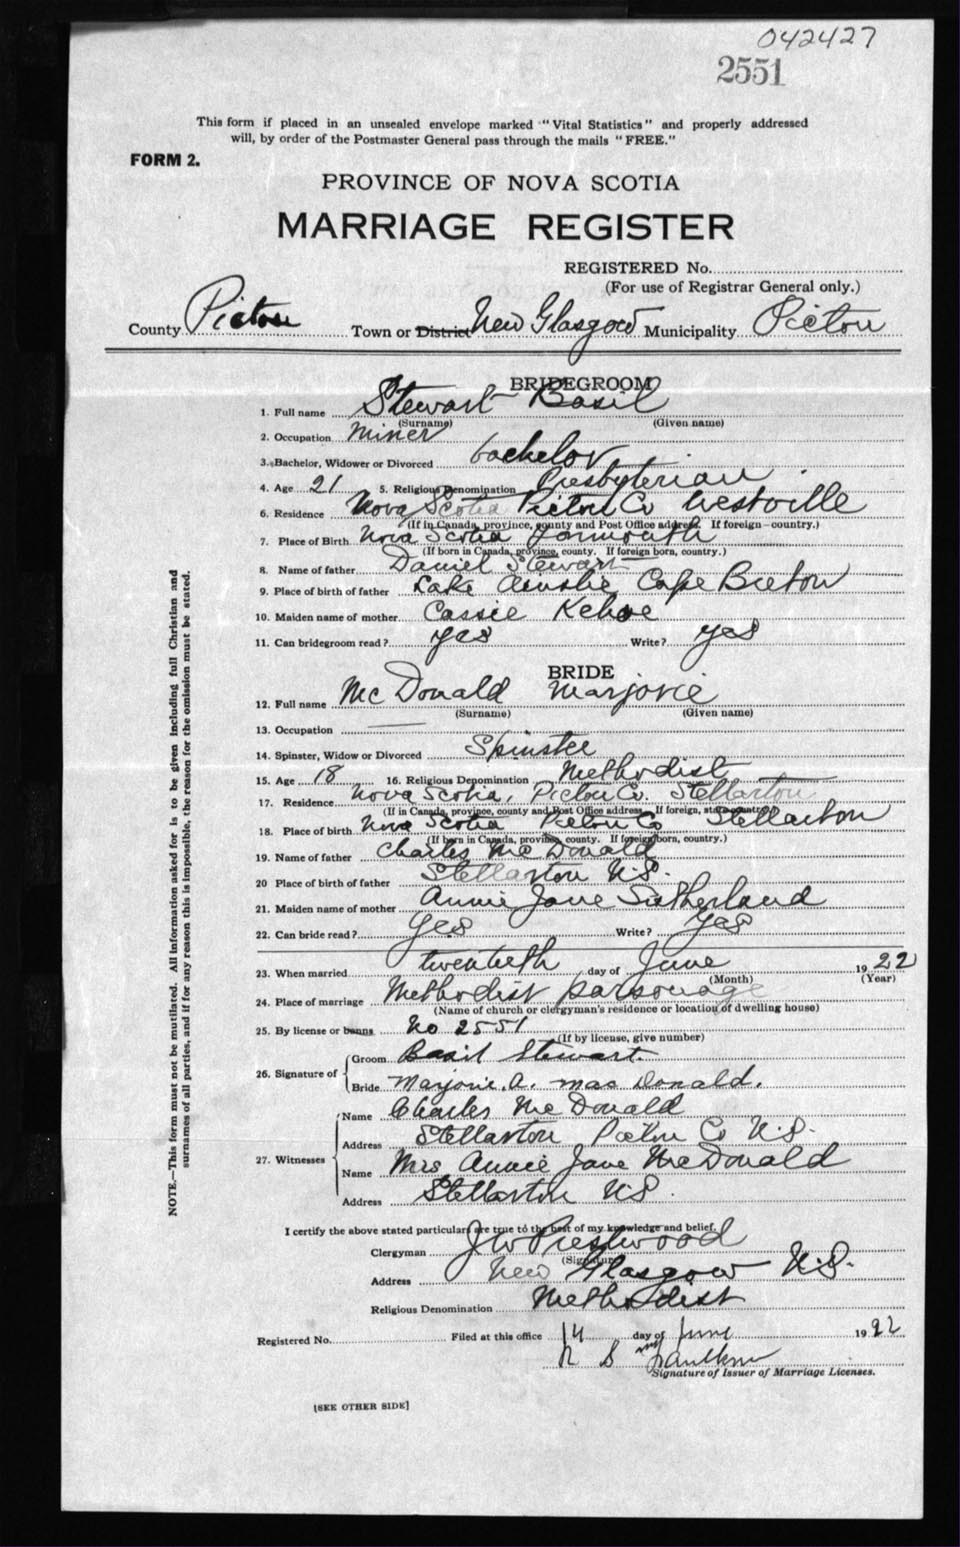 042427
2551
This form if placed in an unsealed envelope marked "Vital Statistics" and properly addressed
will, by order of the Postmaster General pass through the mails "FREE."
FORM 2.
PROVINCE OF NOVA SCOTIA
MARRIAGE REGISTER
REGISTERED No.
(For use of Registrar General only.)
County Pictou Town or District New Glasgow Municipality Pictou
BRIDEGROOM
1. Full name Stewart Basil
(Surname) (Given name)
2. Occupation miner
3. Bachelor, Widower or Divorced bachelor
4. Age 21 5. Religious Denomination Presbyterian
6. Residence Nova Scotia Pictou Co Westville
(If in Canada, province, county and Post Office address. If foreign—country.)
7. Place of Birth Nova Scotia Yarmouth
(If born in Canada, province, county. If foreign born, country.)
8. Name of father Daniel Stewart
9. Place of birth of father Lake Ainslie Cape Breton
10. Maiden name of mother Cassie Kehoe
11. Can bridegroom read? yes Write? yes
BRIDE
12. Full name McDonald Marjorie
(Surname) (Given name)
13. Occupation
14. Spinster, Widow or Divorced Spinster
15. Age 18 16. Religious Denomination Methodist
17. Residence Nova Scotia, Pictou Co. Stellarton
(If in Canada, province, county and Post Office address. If foreign, state country.)
18. Place of birth Nova Scotia Pictou Co Stellarton
(If born in Canada, province, county. If foreign born, country.)
19. Name of father Charles McDonald
20 Place of birth of father Stellarton N.S.
21. Maiden name of mother Annie Jane Sutherland
22. Can bride read? yes Write? yes
23. When married twentieth day of June 1922
(Month) (Year)
24. Place of marriage Methodist parsonage
(Name of church or clergyman's residence or location of dwelling house)
25. By license or banns No 2551
(If by license, give number)
26. Signature of
Groom Basil Stewart.
Bride Marjorie. A. mac Donald.
27. Witnesses
Name Charles McDonald
Address Stellarton Pictou Co N.S.
Name Mrs Annie Jane McDonald
Address Stellarton N.S.
I certify the above stated particulars are true to the best of my knowledge and belief.
Clergyman J W Prestwood
(Signature)
Address New Glasgow N.S.
Religious Denomination Methodist
Registered No. Filed at this office 14 day of June 1922
Signature of Issuer of Marriage Licenses.
[SEE OTHER SIDE]
NOTE.—This form must not be mutilated. All information asked for is to be given including full Christian and
surnames of all parties, and if for any reason this is impossible, the reason for the omission must be stated.